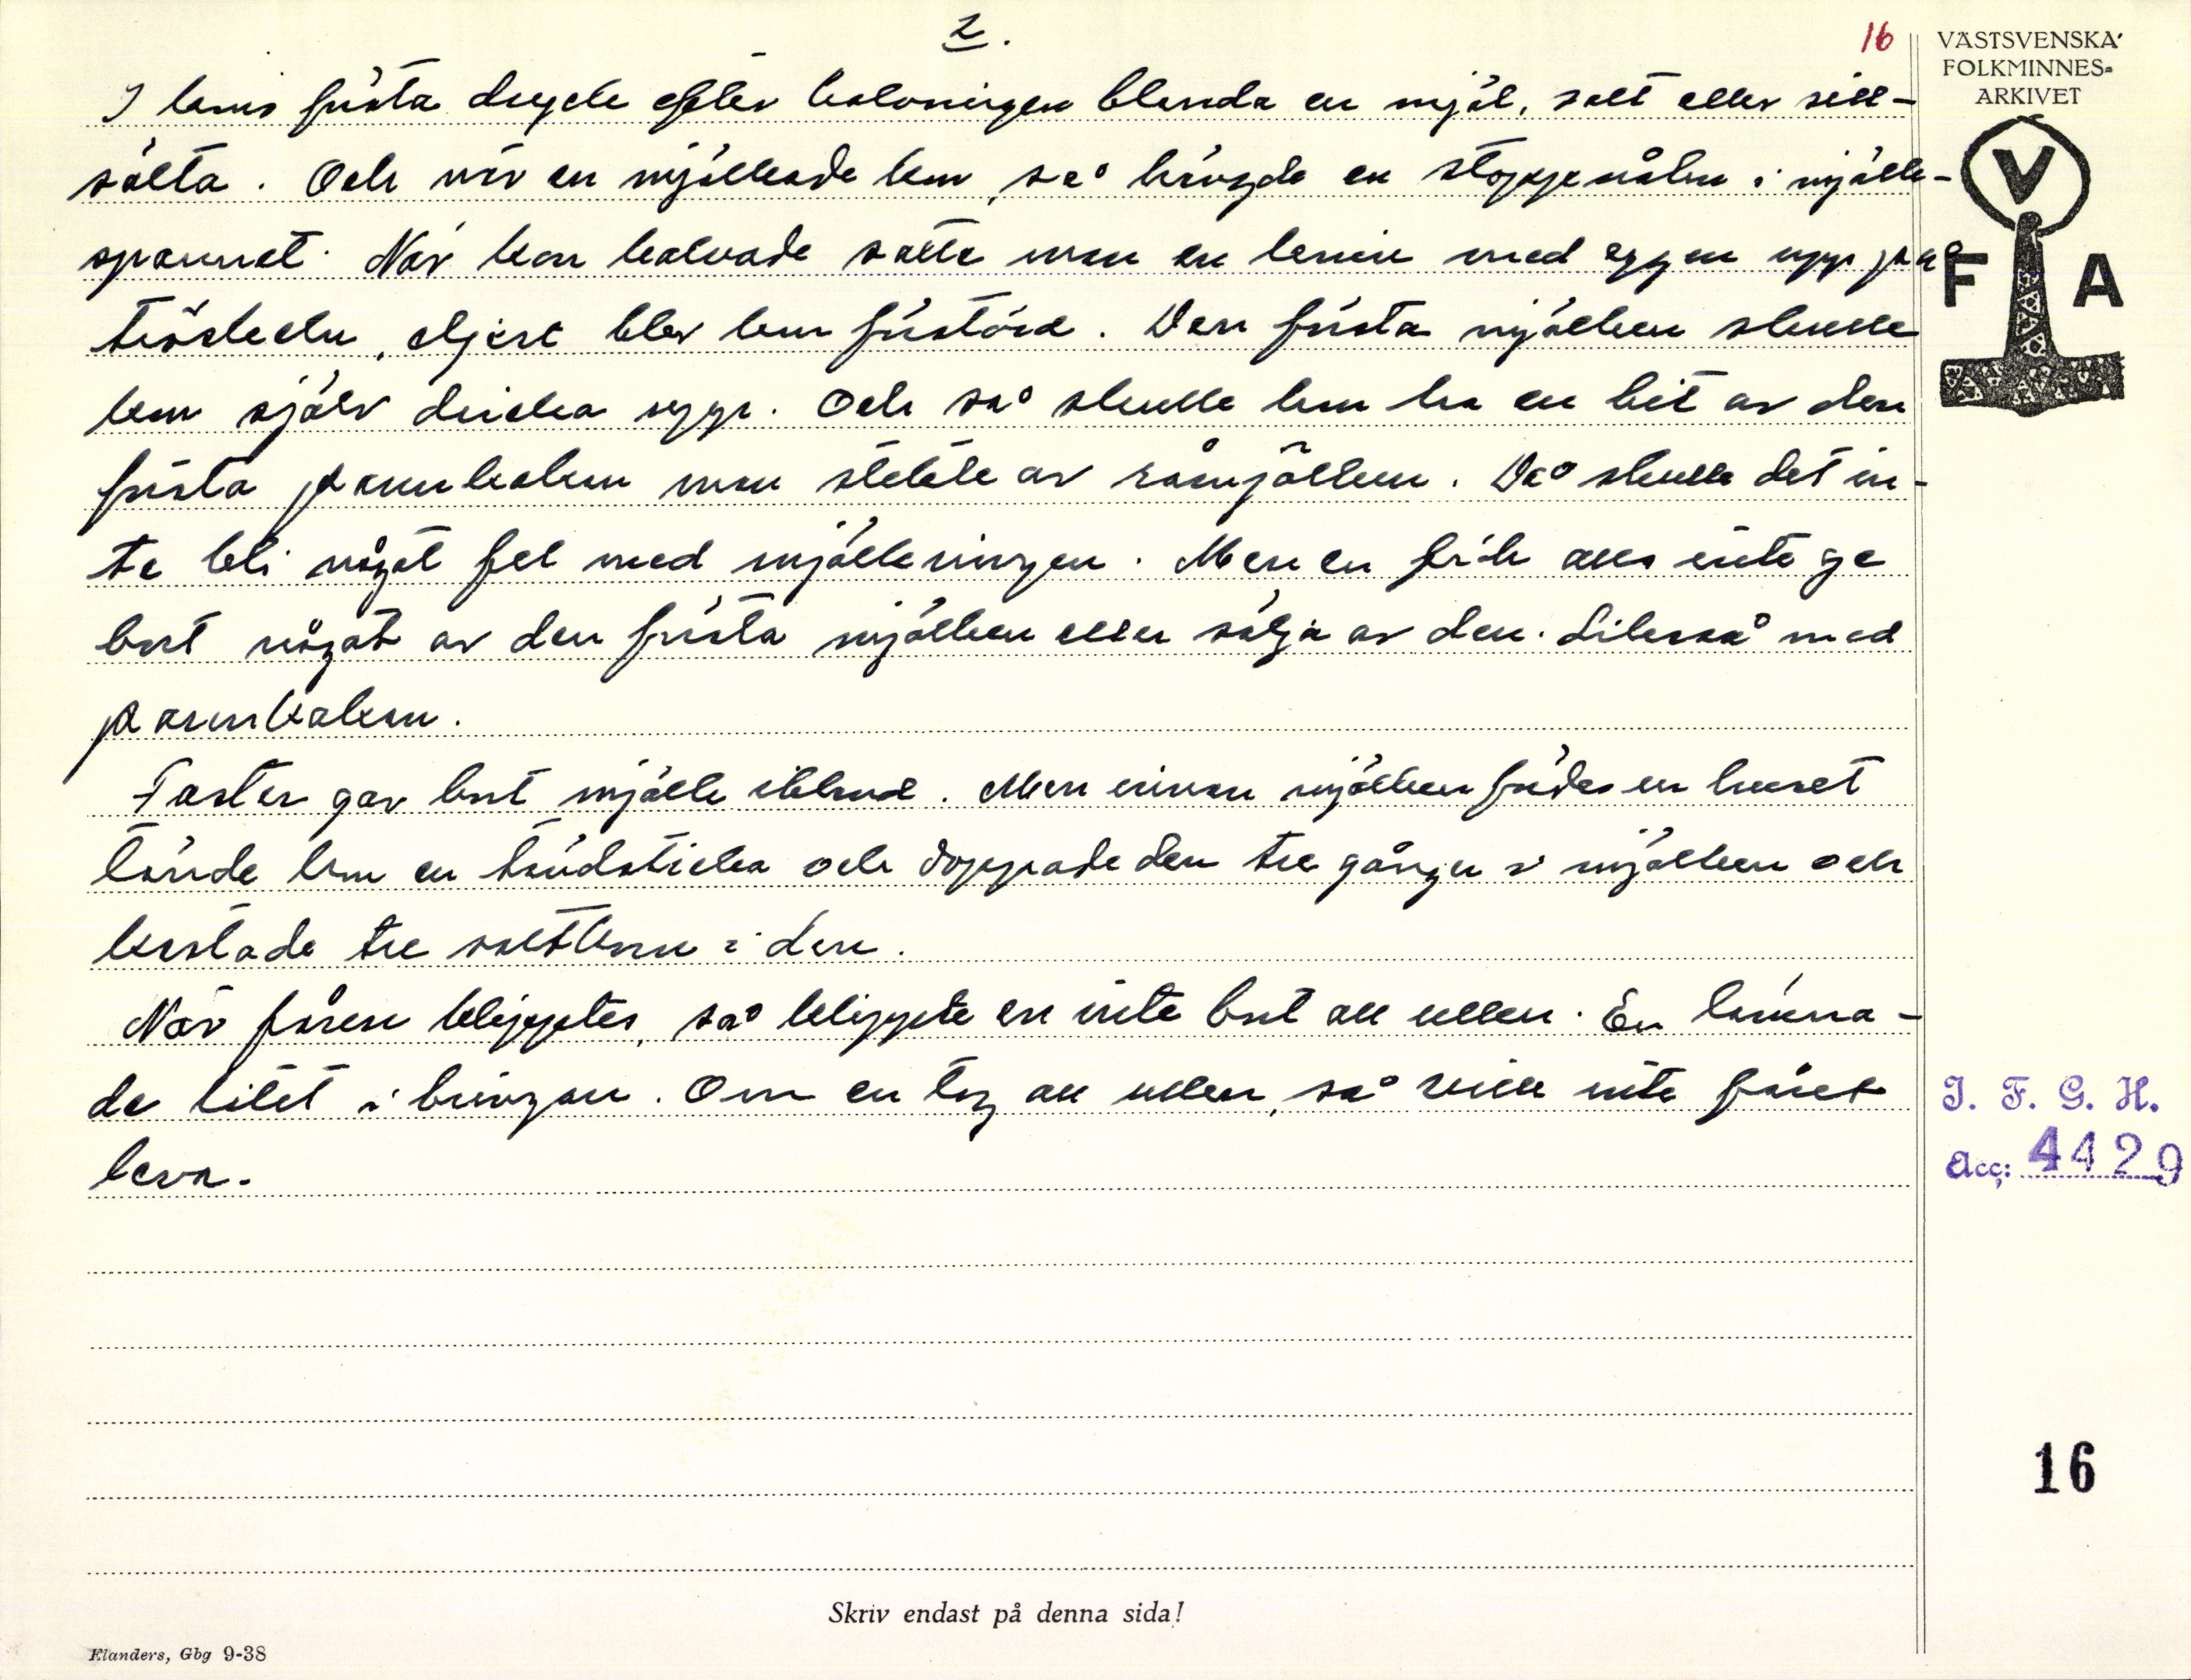 2.
16
VÄSTSVENSKA
FOLKMINNES-
ARKIVET
V
F A
I kons första dryck efter kalvningen blanda en mjöl, salt eller sill-
sälta. Och när en mjölkade kon, så hängde en stoppenålen i mjölk-
spannet. När kon kalvade satte man en lemin med eggen upp på
tröskeln, eljest blev kon förstörd. Den första mjölken skulle
kon själv dricka upp. Och så skulle kon ha en bit av den
första pannkakan man stekte av råmjölken. Då skulle det in-
te bli något fel med mjölkningen. Men en fick alls inte ge
bort något av den första mjölken eller sälja av den. Likaså med
pannkakan.
Faster gav bort mjölk ibland. Men innan mjölken fördes ur huset
tände hon en tändsticka och doppade den tre gånger i mjölken och
kastade tre saltkorn i den.
När fåren klipptes, så klippte en inte bort all ullen. En lämna-
de litet i bringan. Om en tog all ullen, så ville inte fåret
leva.
I. F. G. H.
Acc: 4429
16
Skriv endast på denna sida!
Elanders, Gbg 9-38